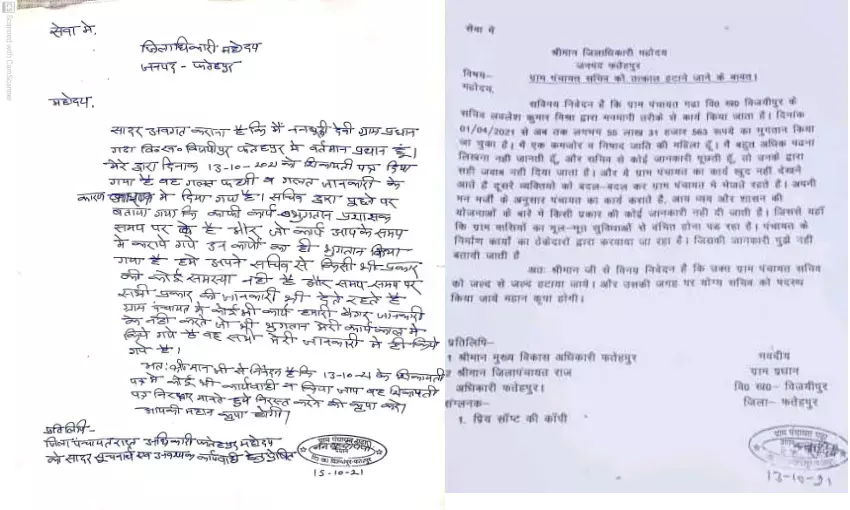 सेवा मे,
जिलाधिकारी महोदय
जनपद - फतेहपुर
महोदय,
सादर अवगत कराना है कि मैं ननबुट्टी देवी ग्राम प्रधान
गढा वि०ख० विजयीपुर फतेहपुर मे वर्तमान प्रधान हूँ।
मेरे द्वारा दिनांक 13-10-2021 को शिकायती पत्र दिया
गया है वह गलत फहमी व गलत जानकारी के
कारण मे दिया गया है। सचिव द्वारा पूछने पर
बताया गया कि काफी कार्य भुगतान प्रशासक
समय पर के है और जो कार्य आपके समय
मे कराये गये उन कार्यो का ही भुगतान किया
गया है हमे अपने सचिव से किसी भी प्रकार
की कोई समस्या नही है और समय-समय पर
सभी प्रकार की जानकारी भी देते रहते है
ग्राम पंचायत मे कोई भी कार्य हमारी बगैर जानकारी
के नही करते जो भी भुगतान मेरी कार्यकाल मे
किये गये है वह सभी मेरी जानकारी मे ही किये
गये है।
अतः श्रीमान जी से निवेदन है कि 13-10-21 के शिकायती
पत्र मे कोई भी कार्यवाही न किया जाय वह शिकायती
पत्र निराधार मानते हुये निरस्त करने की कृपा करे।
आपकी महान कृपा होगी।
प्रतिलिपि-
जिला पंचायतराज अधिकारी फतेहपुर महोदय
को सादर सूचनार्थ एवं आवश्यक कार्यवाही हेतु प्रेषित
15-10-21
सेवा मे
श्रीमान जिलाधिकारी महोदय
जनपद फतेहपुर
विषय- ग्राम पंचायत सचिव को तत्काल हटाने जाने के बावत।
महोदय,
सविनय निवेदन है कि ग्राम पंचायत गढा वि० ख० विजयीपुर के
सचिव लवलेश कुमार मिश्रा द्वारा मनमानी तरीके से कार्य किया जाता है। दिनांक
01/04/2021 से अब तक लगभग 55 लाख 31 हजार 563 रूपये का भुगतान किया
जा चुका है। मै एक कमजोर व निषाद जाति की महिला हूँ। मै बहुत अधिक पढना
लिखना नही जानती हूँ, और सचिव से कोई जानकारी पूछती हूँ, तो उनके द्वारा
सही जवाब नही दिया जाता है। और ये ग्राम पंचायत का कार्य खुद नही देखने
आते है दूसरे व्यक्तियो को बदल-बदल कर ग्राम पंचायत मे भेजते रहते है। अपनी
मन मर्जी के अनुसार पंचायत का कार्य कराते है, आय व्यय और शासन की
योजनाओ के बारे मे किसी प्रकार की कोई जानकारी नही दी जाती है। जिससे यहाँ
कि ग्राम वासियों का मूल-भूत सुविधाओ से वंचित होना पड रहा है। पंचायत के
निर्माण कार्यो का ठेकेदारों द्वारा करवाया जा रहा है। जिसकी जानकारी मुझे नही
बतायी जाती है
अतः श्रीमान जी से विनय निवेदन है कि उक्त ग्राम पंचायत सचिव
को जल्द से जल्द हटाया जाये। और उसकी जगह पर योग्य सचिव को पदस्थ
किया जाये महान कृपा होगी।
प्रतिलिपि-
1 श्रीमान मुख्य विकास अधिकारी फतेहपुर
2 श्रीमान जिलापंचायत राज
अधिकारी फतेहपुर।
संलग्नक-
1. प्रिय सॉफ्ट की कॉपी
भवदीय
ग्राम प्रधान
वि० ख०- विजयीपुर
जिला- फतेहपुर
13-10-21
Scanned with CamScanner